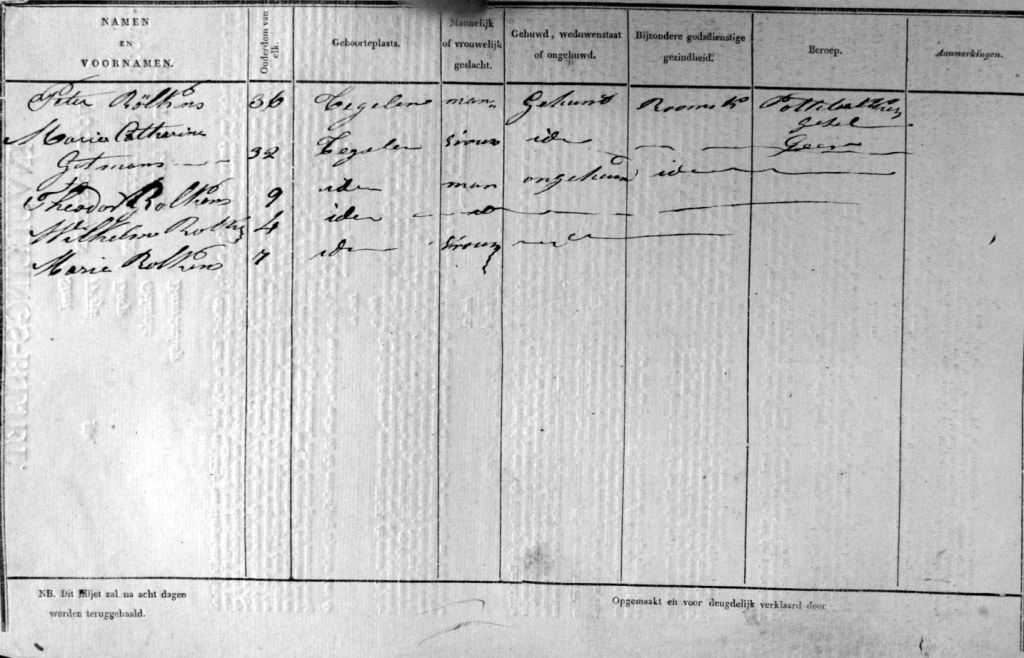 NAMEN EN VOORNAMEN. Ouderdom van elk. Geboorteplaats. Mannelijk of vrouwelijk geslacht. Gehuwd, weduwenstaat of ongehuwd. Bijzondere godsdienstige gezindheid. Beroep. Aanmerkingen.
Peter Rölkens 36 Tegelen man Gehuwd Roomsk
Maria Catharina
Gotmans 32 Tegelen vrouw idem Geen
Theodor Rolkens 9 idem man ongehuwd idem
Wilhelm Rolkens 4 idem
Maria Rolkens 7 idem vrouw
NB. Dit Biljet zal na acht dagen
worden teruggehaald.
Opgemaakt en voor deugdelijk verklaard door